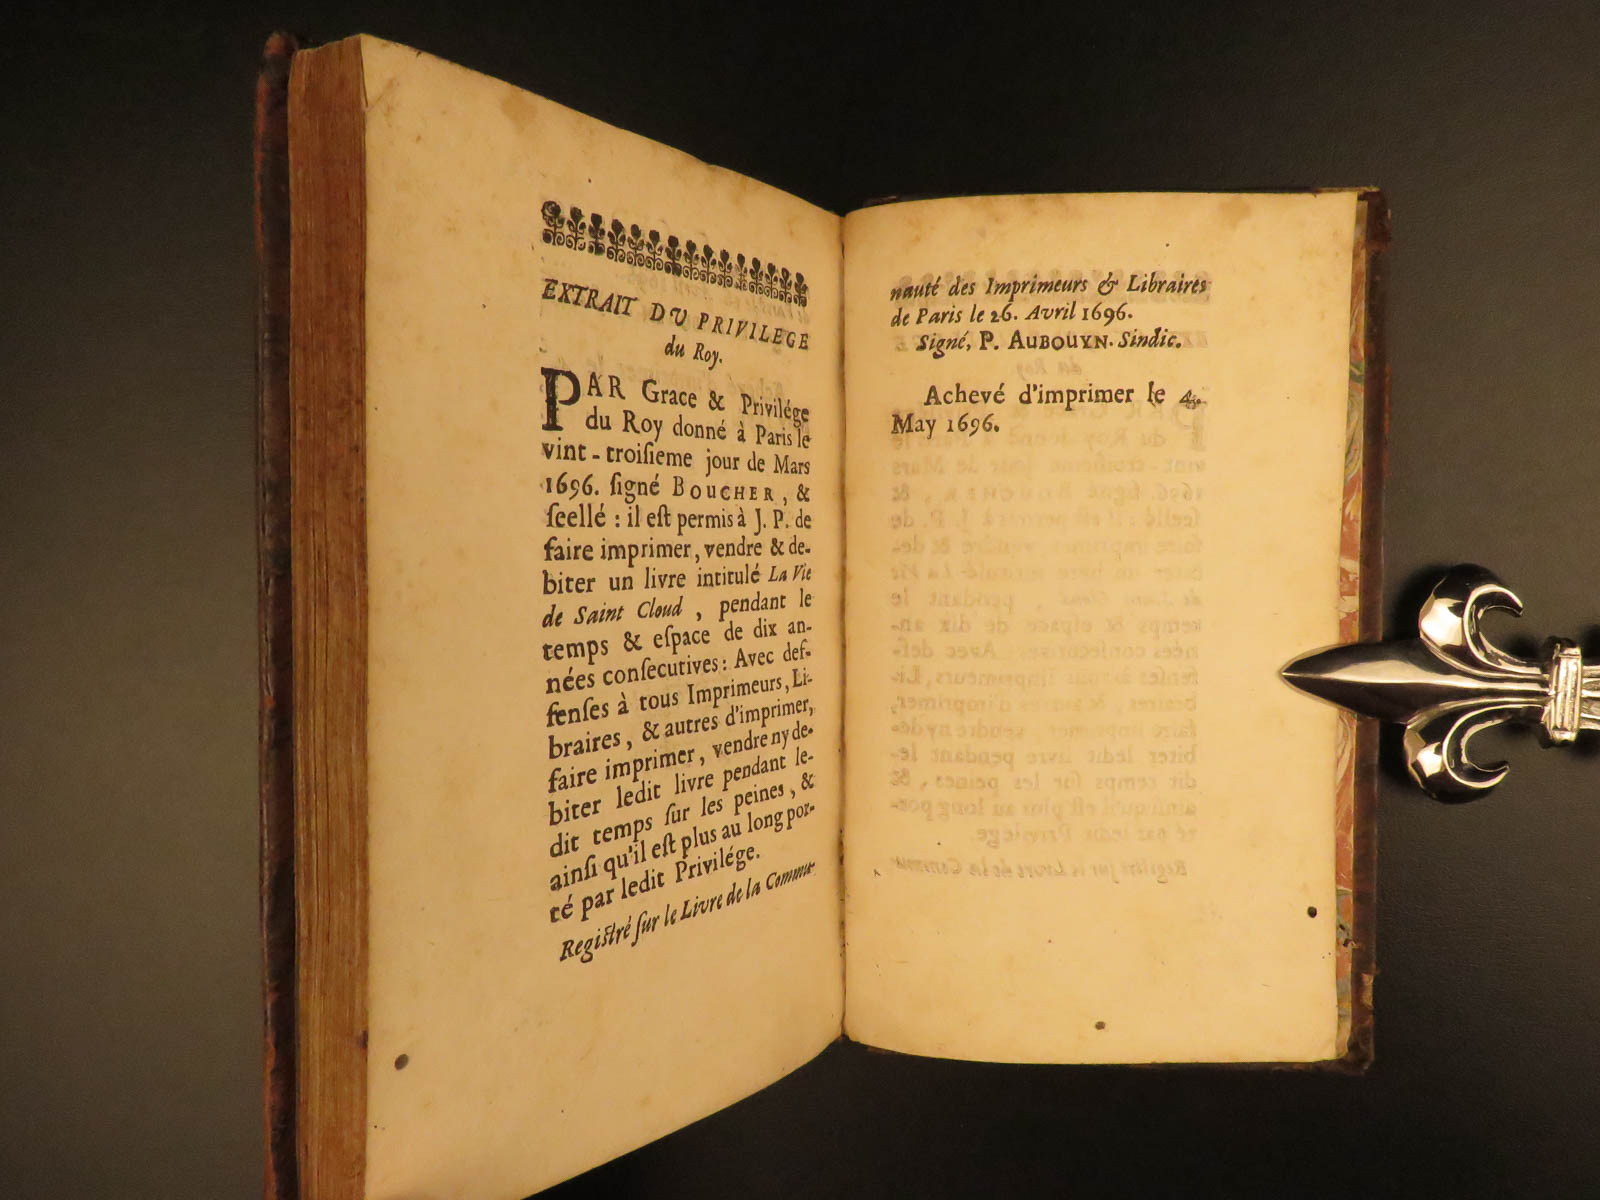 EXTRAIT DU PRIVILEGE
du Roy.
PAR Grace & Privilége
du Roy donné à Paris le
vint-troiſieme jour de Mars
1696. ſigné BOUCHER, &
ſeellé : il eſt permis à J. P. de
faire imprimer, vendre & de-
biter un livre intitulé La Vie
de Saint Cloud, pendant le
temps & eſpace de dix an-
nées conſecutives : Avec def-
fenſes à tous Imprimeurs, Li-
braires, & autres d'imprimer,
faire imprimer, vendre ny de-
biter ledit livre pendant le-
dit temps ſur les peines, &
ainſi qu'il eſt plus au long por-
té par ledit Privilége.
Regiſtré ſur le Livre de la Commu-
nauté des Imprimeurs & Libraires
de Paris le 26. Avril 1696.
Signé, P. AUBOUYN. Sindic.
Achevé d'imprimer le 4.
May 1696.